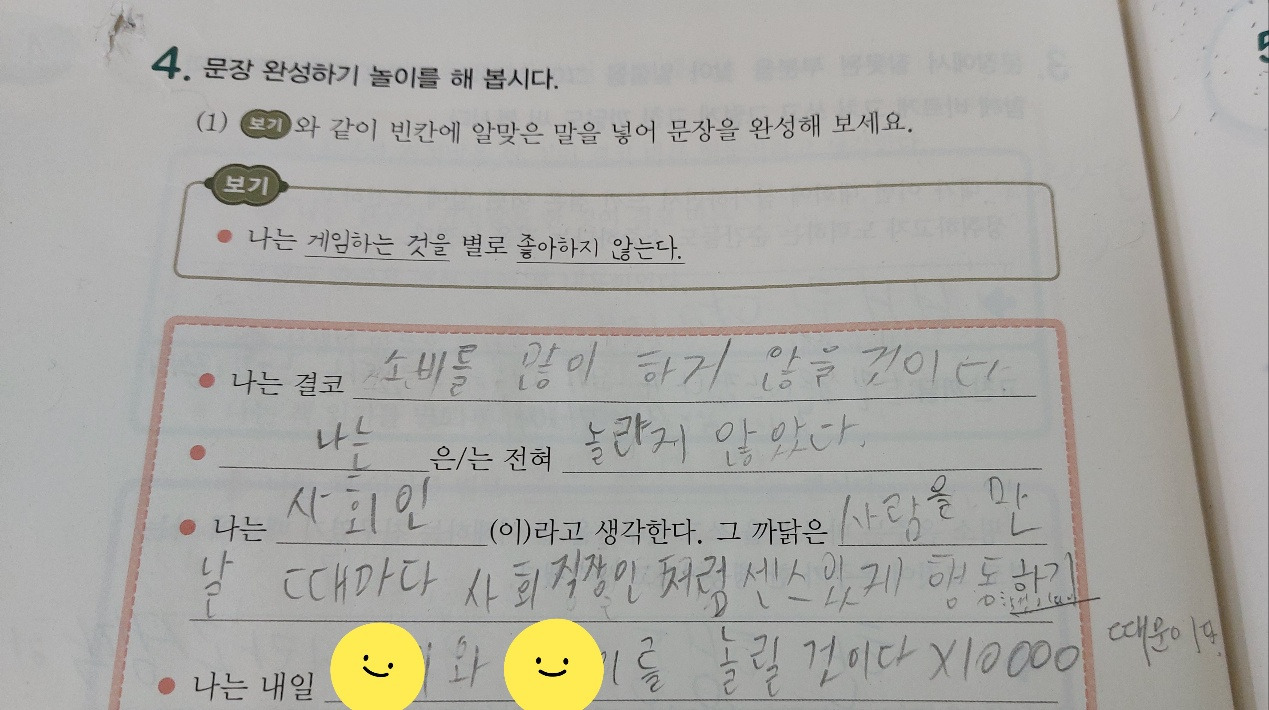 4. 문장 완성하기 놀이를 해 봅시다.
(1) 보기와 같이 빈칸에 알맞은 말을 넣어 문장을 완성해 보세요.
보기
• 나는 게임하는 것을 별로 좋아하지 않는다.
• 나는 결코 소비를 많이 하지 않을 것이다.
• 나는 은/는 전혀 놀라지 않았다.
• 나는 사회인 (이)라고 생각한다. 그 까닭은 사람을 만
날 때마다 사회 직장인처럼 센스있게 행동하기
때문이다.
• 나는 내일 와 를 놀릴 건이다 X10000